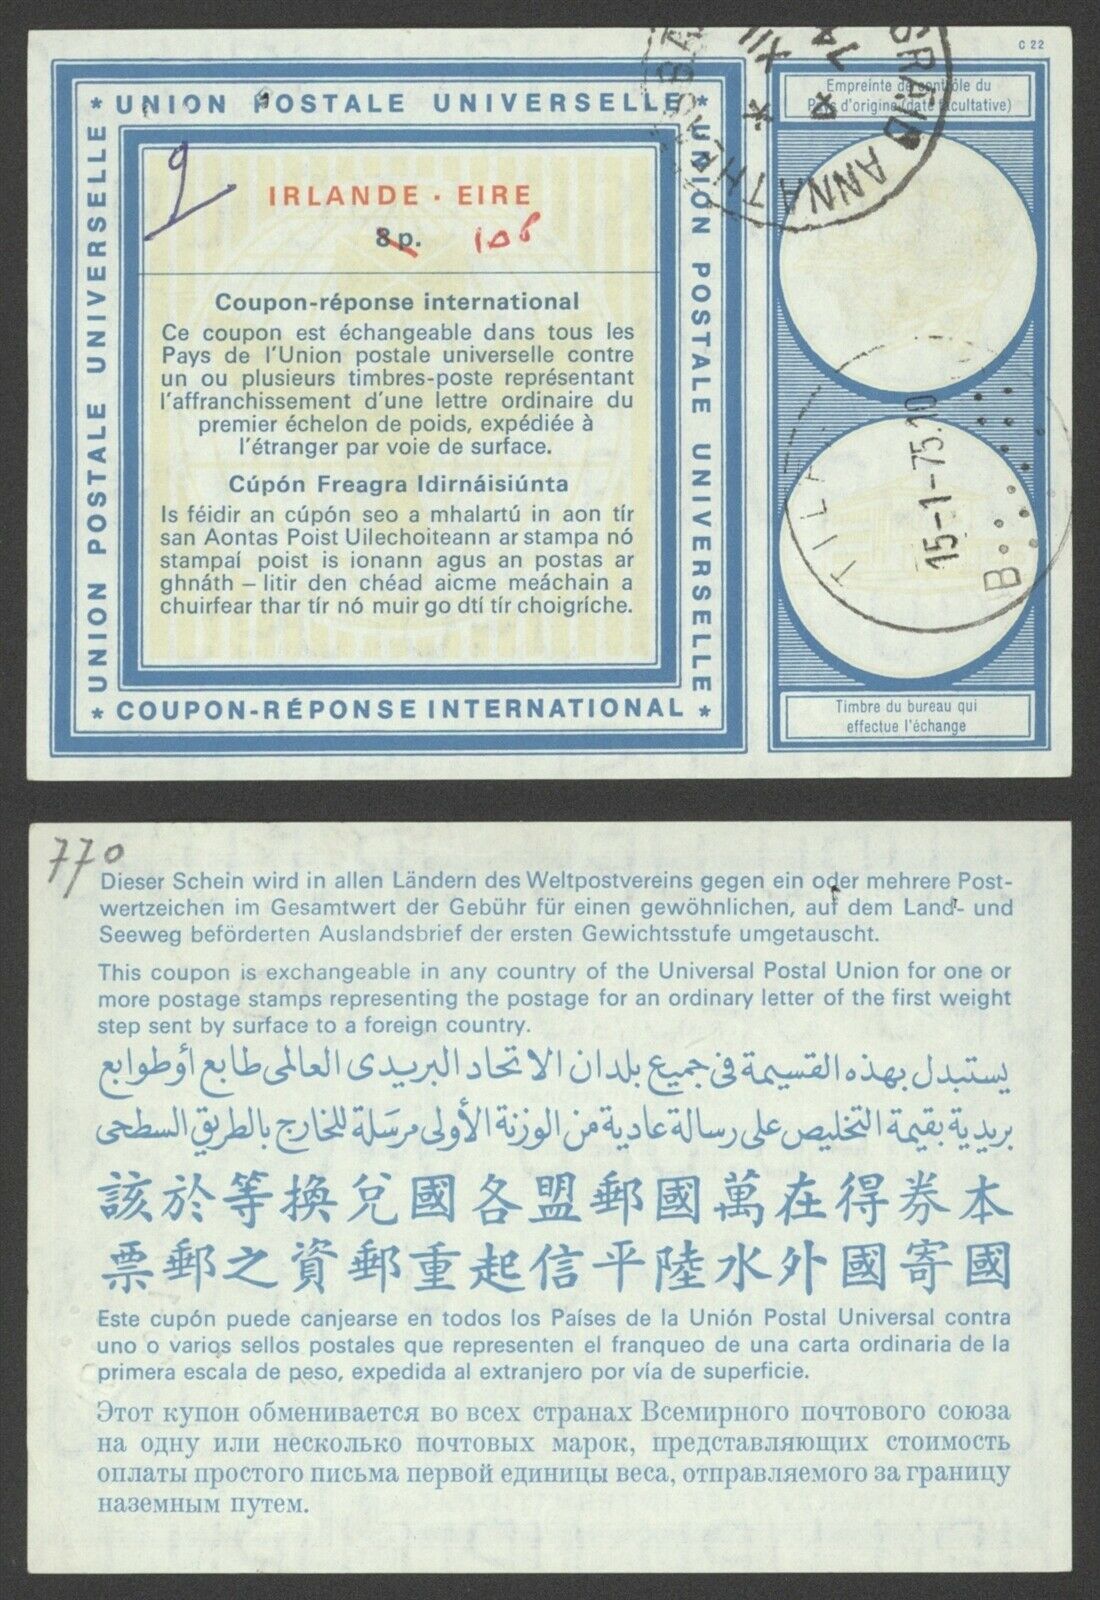 C 22
* UNION POSTALE UNIVERSELLE *
UNION POSTALE UNIVERSELLE
UNION POSTALE UNIVERSELLE
* COUPON-RÉPONSE INTERNATIONAL *
9
IRLANDE · EIRE
8p. 10p
Coupon-réponse international
Ce coupon est échangeable dans tous les
Pays de l'Union postale universelle contre
un ou plusieurs timbres-poste représentant
l'affranchissement d'une lettre ordinaire du
premier échelon de poids, expédiée à
l'étranger par voie de surface.
Cúpón Freagra Idirnáisiúnta
Is féidir an cúpón seo a mhalartú in aon tír
san Aontas Poist Uilechoiteann ar stampa nó
stampaí poist is ionann agus an postas ar
ghnáth – litir den chéad aicme meáchain a
chuirfear thar tír nó muir go dtí tír choigríche.
Empreinte de contrôle du
Pays d'origine (date facultative)
ANNA
XII
15-1-75.10
B
Timbre du bureau qui
effectue l'échange
770
Dieser Schein wird in allen Ländern des Weltpostvereins gegen ein oder mehrere Post-
wertzeichen im Gesamtwert der Gebühr für einen gewöhnlichen, auf dem Land- und
Seeweg beförderten Auslandsbrief der ersten Gewichtsstufe umgetauscht.
This coupon is exchangeable in any country of the Universal Postal Union for one or
more postage stamps representing the postage for an ordinary letter of the first weight
step sent by surface to a foreign country.
يستبدل بهذه القسيمة فى جميع بلدان الاتحاد البريدى العالمى طابع أو طوابع
بريدية بقيمة التخليص على رسالة عادية من الوزنة الأولى مرسلة للخارج بالطريق السطحى
該於等換兌國各盟郵國萬在得券本
票郵之資郵重起信平陸水外國寄國
Este cupón puede canjearse en todos los Países de la Unión Postal Universal contra
uno o varios sellos postales que representen el franqueo de una carta ordinaria de la
primera escala de peso, expedida al extranjero por vía de superficie.
Этот купон обменивается во всех странах Всемирного почтового союза
на одну или несколько почтовых марок, представляющих стоимость
оплаты простого письма первой единицы веса, отправляемого за границу
наземным путем.